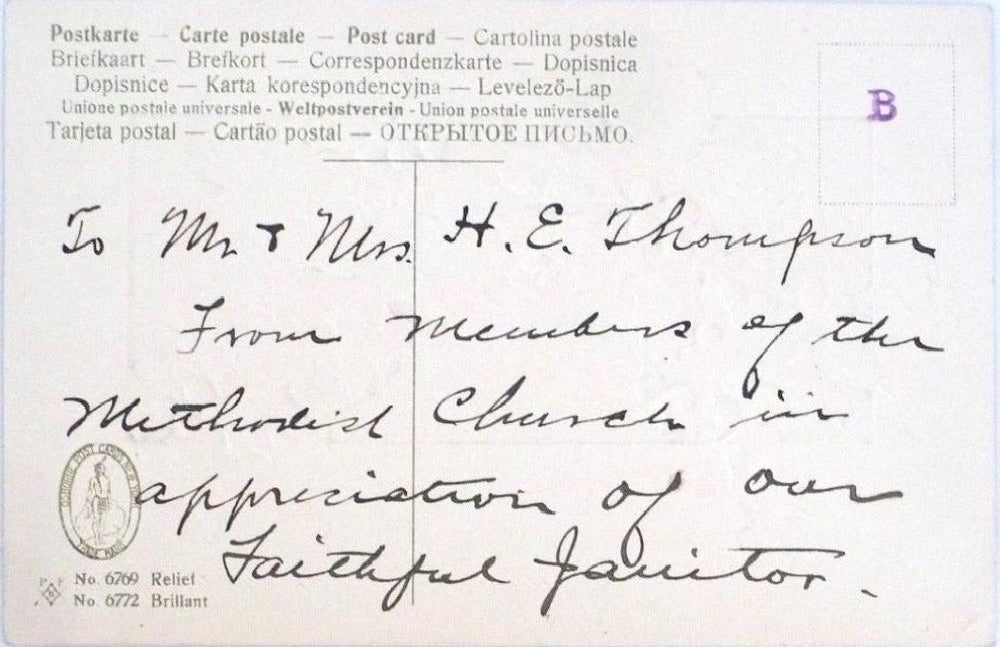 Postkarte — Carte postale — Post card — Cartolina postale
Briefkaart — Brefkort — Correspondenzkarte — Dopisnica
Dopisnice — Karta korespondencyjna — Levelező-Lap
Unione postale universale - Weltpostverein - Union postale universelle
Tarjeta postal — Cartão postal — ОТКРЫТОЕ ПИСЬМО.
B
To Mr. & Mrs. H. E. Thompson
From Members of the
Methodist Church in
appreciation of our
Faithful Janitor.
POST CARDS
TRADE MARK
P F B
No. 6769 Relief
No. 6772 Brillant